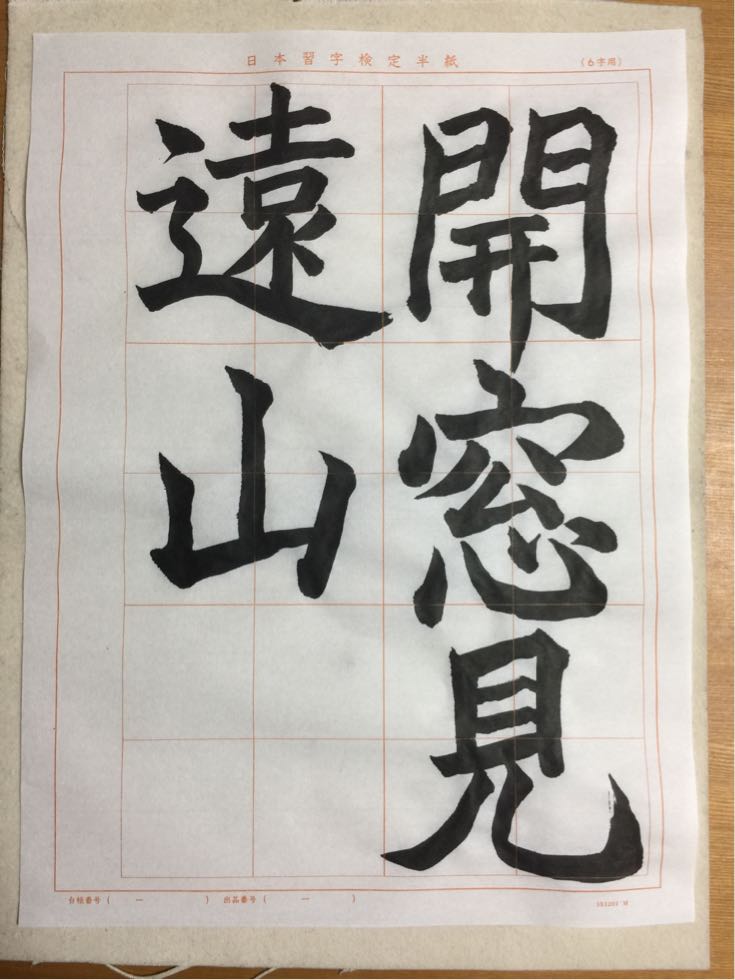 日本習字検定半紙
(6字用)
開窓見
遠山
台帳番号 ( ー )
出品番号 ( ー )